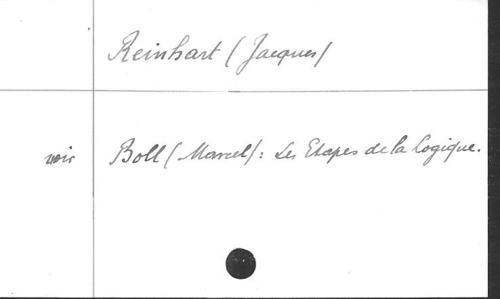 Reinhart (Jacques)
voir Boll (Marcel): Les Etapes de la Logique.